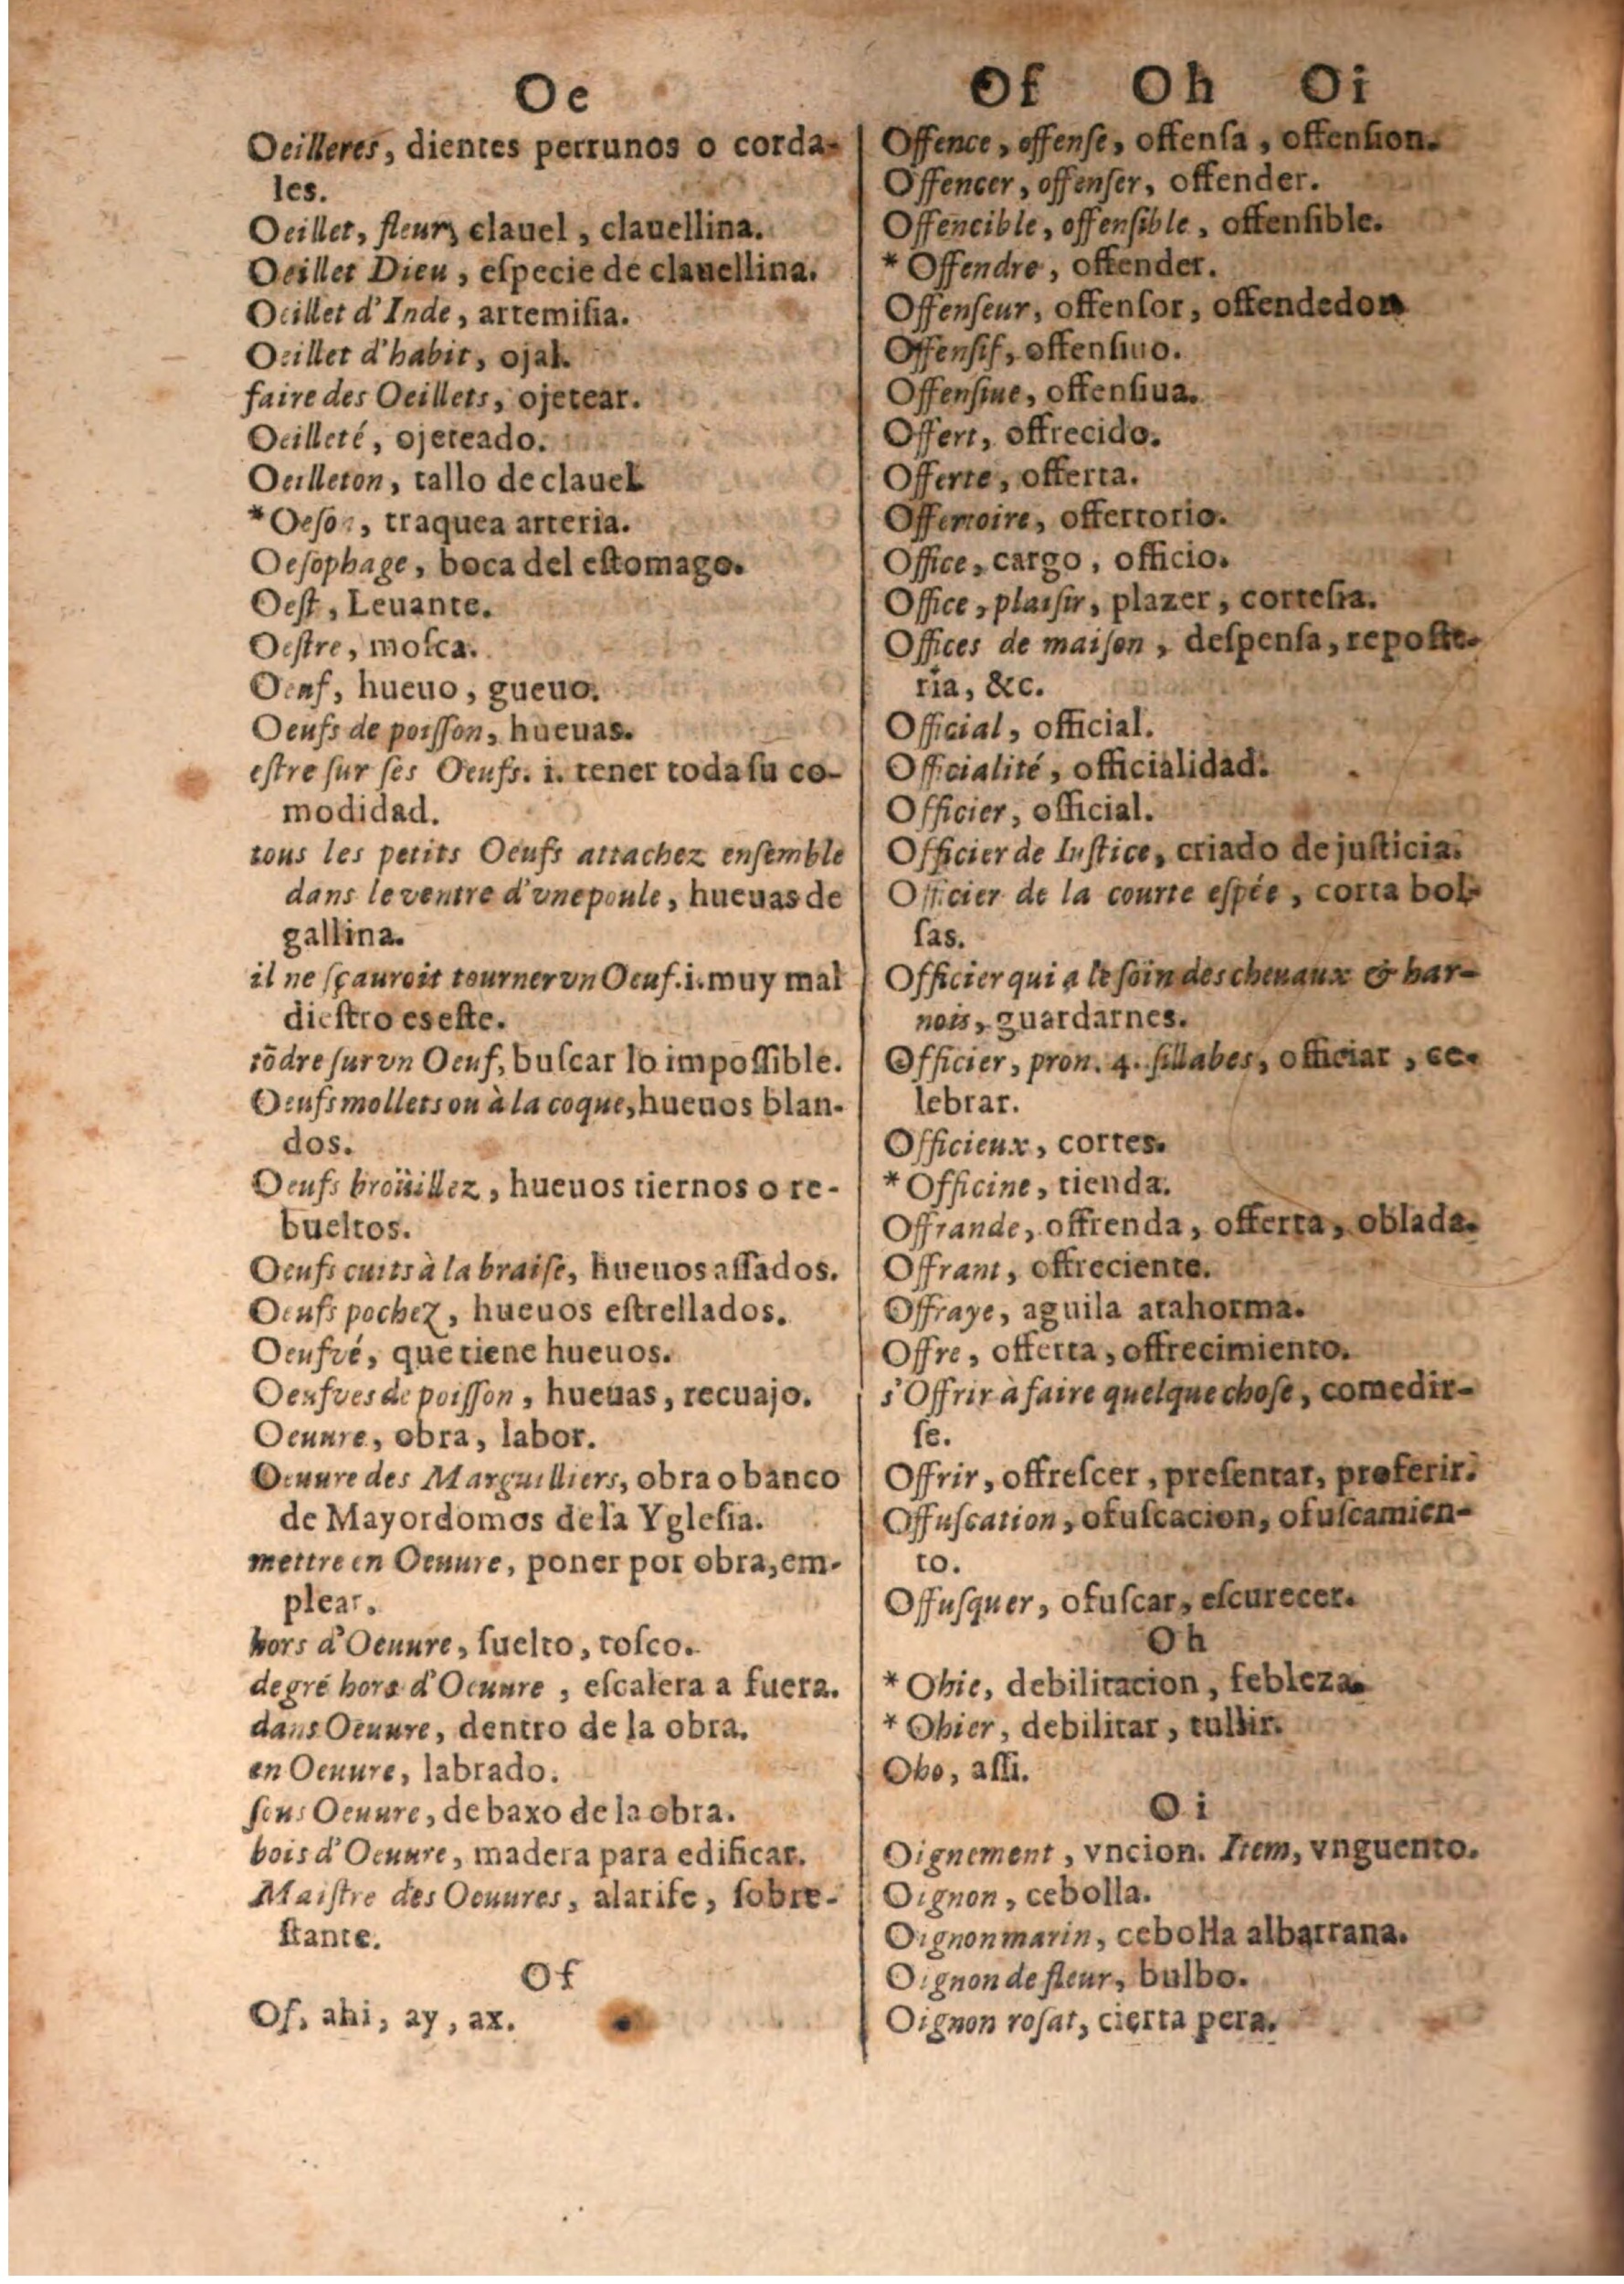 Oe
Oeilleres, dientes perrunos o corda-
les.
Oeillet, fleur, clauel, clauellina.
Oeillet Dieu, eſpecie de clauellina.
Oeillet d'Inde, artemiſia.
Oeillet d'habit, ojal.
faire des Oeillets, ojetear.
Oeilleté, ojeteado.
Oeilleton, tallo de clauel
*Oeſo, traquea arteria.
Oeſophage, boca del eſtomago.
Oeſt, Leuante.
Oeſtre, moſca.
Oeuf, hueuo, gueuo.
Oeufs de poiſſon, hueuas.
eſtre ſur ſes Oeufs. i. tener toda ſu co-
modidad.
tous les petits Oeufs attachez enſemble
dans le ventre d'vne poule, hueuas de
gallina.
il ne ſçauroit tourner vn Oeuf. i. muy mal
dieſtro es eſte.
tõdre ſur vn Oeuf, buſcar lo impoſſible.
Oeufs mollets ou à la coque, hueuos blan-
dos.
Oeufs broüillez, hueuos tiernos o re-
bueltos.
Oeufs cuits à la braiſe, hueuos aſſados.
Oeufs pochez, hueuos eſtrellados.
Oeufvé, que tiene hueuos.
Oeufves de poiſſon, hueuas, recuajo.
Oeuure, obra, labor.
Oeuure des Marguilliers, obra o banco
de Mayordomos de la Ygleſia.
mettre en Oeuure, poner por obra, em-
plear.
hors d'Oeuure, ſuelto, toſco.
degré hors d'Oeuure, eſcalera a fuera.
dans Oeuure, dentro de la obra.
en Oeuure, labrado.
ſous Oeuure, debaxo de la obra.
bois d'Oeuure, madera para edificar.
Maiſtre des Oeuures, alarife, ſobre-
ſtante.
Of
Of, ahi, ay, ax.
Of Oh Oi
Offence, offenſe, offenſa, offenſion.
Offencer, offenſer, offender.
Offencible, offenſible, offenſible.
*Offendre, offender.
Offenſeur, offenſor, offendedor
Offenſif, offenſiuo.
Offenſiue, offenſiua.
Offert, offrecido.
Offerte, offerta.
Offertoire, offertorio.
Office, cargo, officio.
Office, plaiſir, plazer, corteſia.
Offices de maiſon, deſpenſa, repoſte-
ria, &c.
Official, official.
Officialité, officialidad.
Officier, official.
Officier de Iuſtice, criado de juſticia.
Officier de la courte eſpée, corta bol-
ſas.
Officier qui a le ſoin des cheuaux & har-
nois, guardarnes.
Officier, pron. 4. ſillabes, officiar, ce-
lebrar.
Officieux, cortes.
*Officine, tienda.
Offrande, offrenda, offerta, oblada.
Offrant, offreciente.
Offraye, aguila atahorma.
Offre, offerta, offrecimiento.
s'Offrir à faire quelque choſe, comedir-
ſe.
Offrir, offreſcer, preſentar, proferir.
Offuſcation, ofuſcacion, ofuſcamien-
to.
Offuſquer, ofuſcar, eſcurecer.
Oh
*Ohie, debilitacion, febleza.
*Ohier, debilitar, tullir.
Oho, aſſi.
Oi
Oignement, vncion. Item, vnguento.
Oignon, cebolla.
Oignon marin, cebolla albarrana.
Oignon de fleur, bulbo.
Oignon roſat, cierta pera.